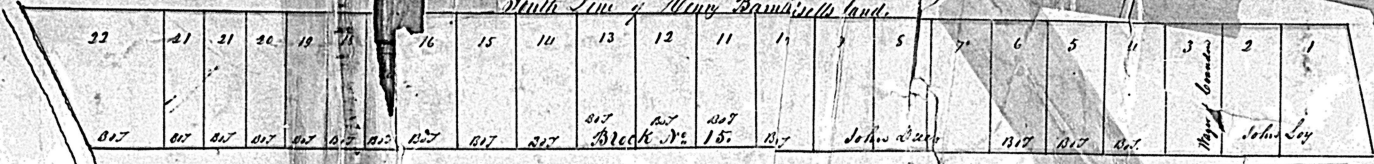 South Line of Henry Bambisells land.
22 21 21 20 19 18 16 15 14 13 12 11 8 7 6 5 4 3 2 1
BOT BOT BOT BOT BOT BOT BOT BOT BOT BOT BOT BOT BOT BOT John BOT BOT BOT John Loy
Block No. 15.